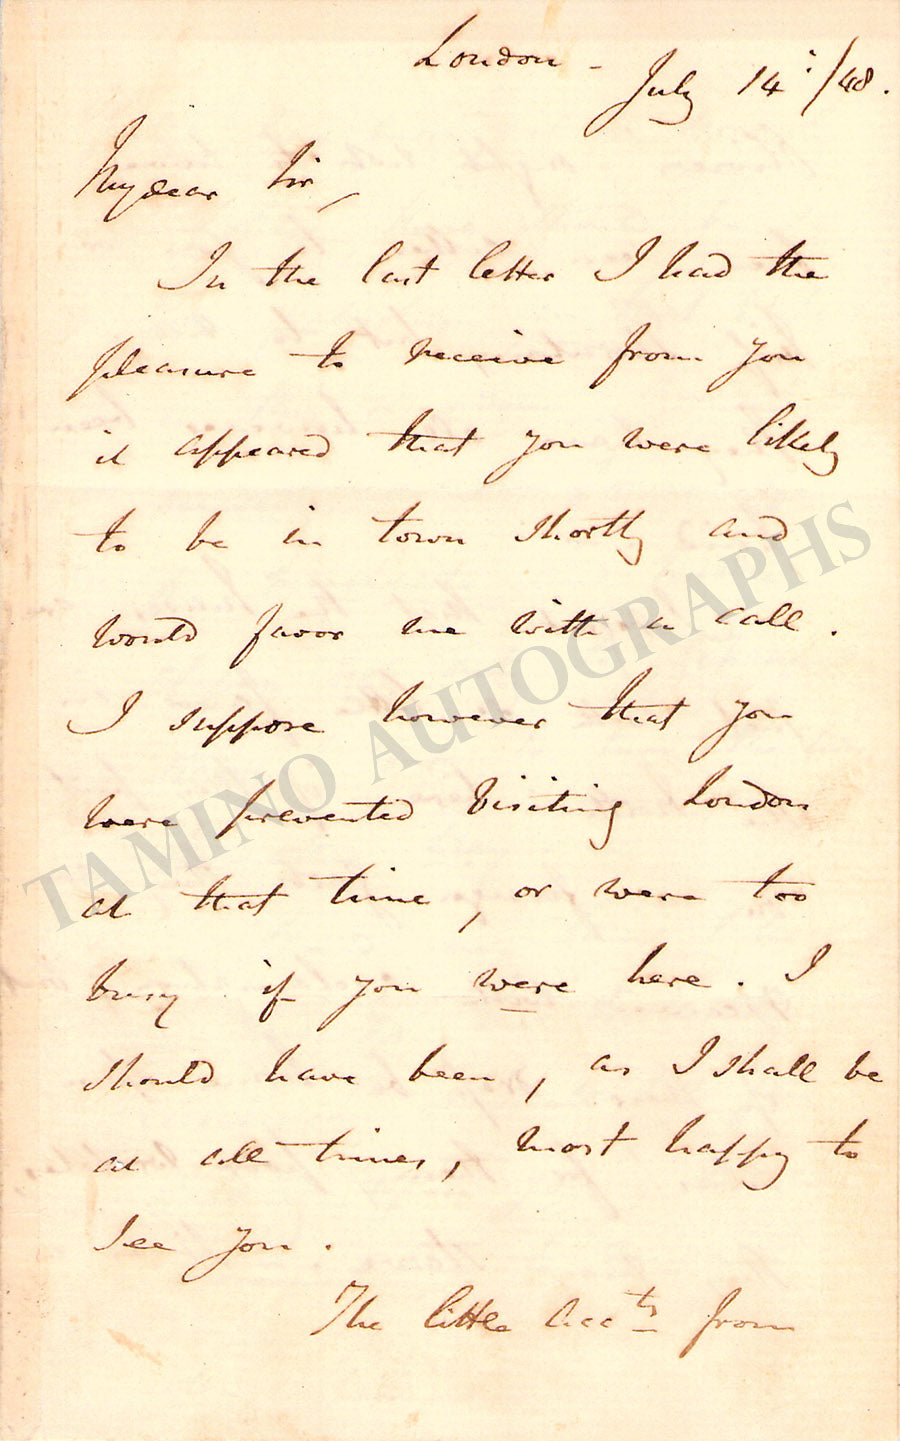 London - July 14: /48.
My dear Sir,
In the last letter I had the
pleasure to receive from you
it appeared that you were likely
to be in town shortly and
would favor me with a call.
I suppose however that you
were prevented visiting London
at that time, or were too
busy if you were here. I
should have been, as I shall be
at all times, most happy to
see you.
The little accts from
TAMINO AUTOGRAPHS